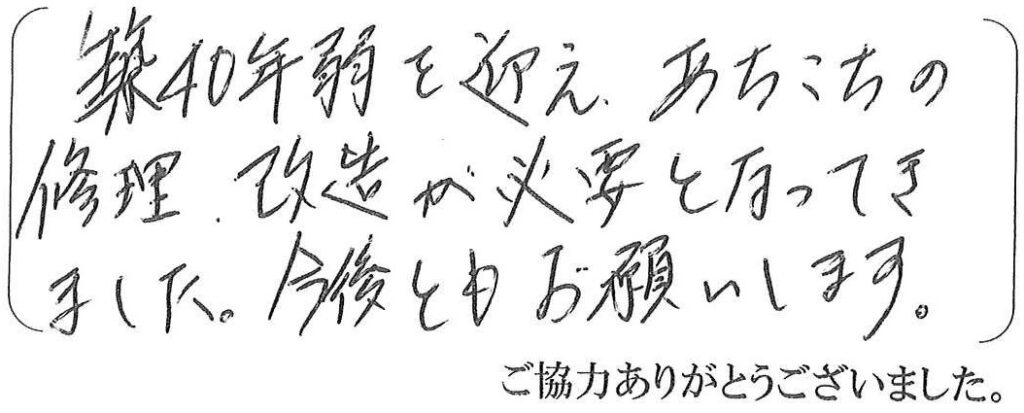 築40年弱を迎え、あちこちの
修理、改造が必要となってき
ました。今後ともお願いします。
ご協力ありがとうございました。